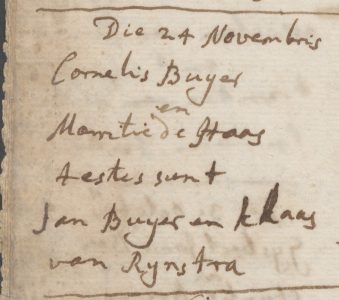 Die 24 Novembris
Cornelis Buyer
en
Marritie de Haas
testes sunt
Jan Buyer en Klaas
van Rynstra